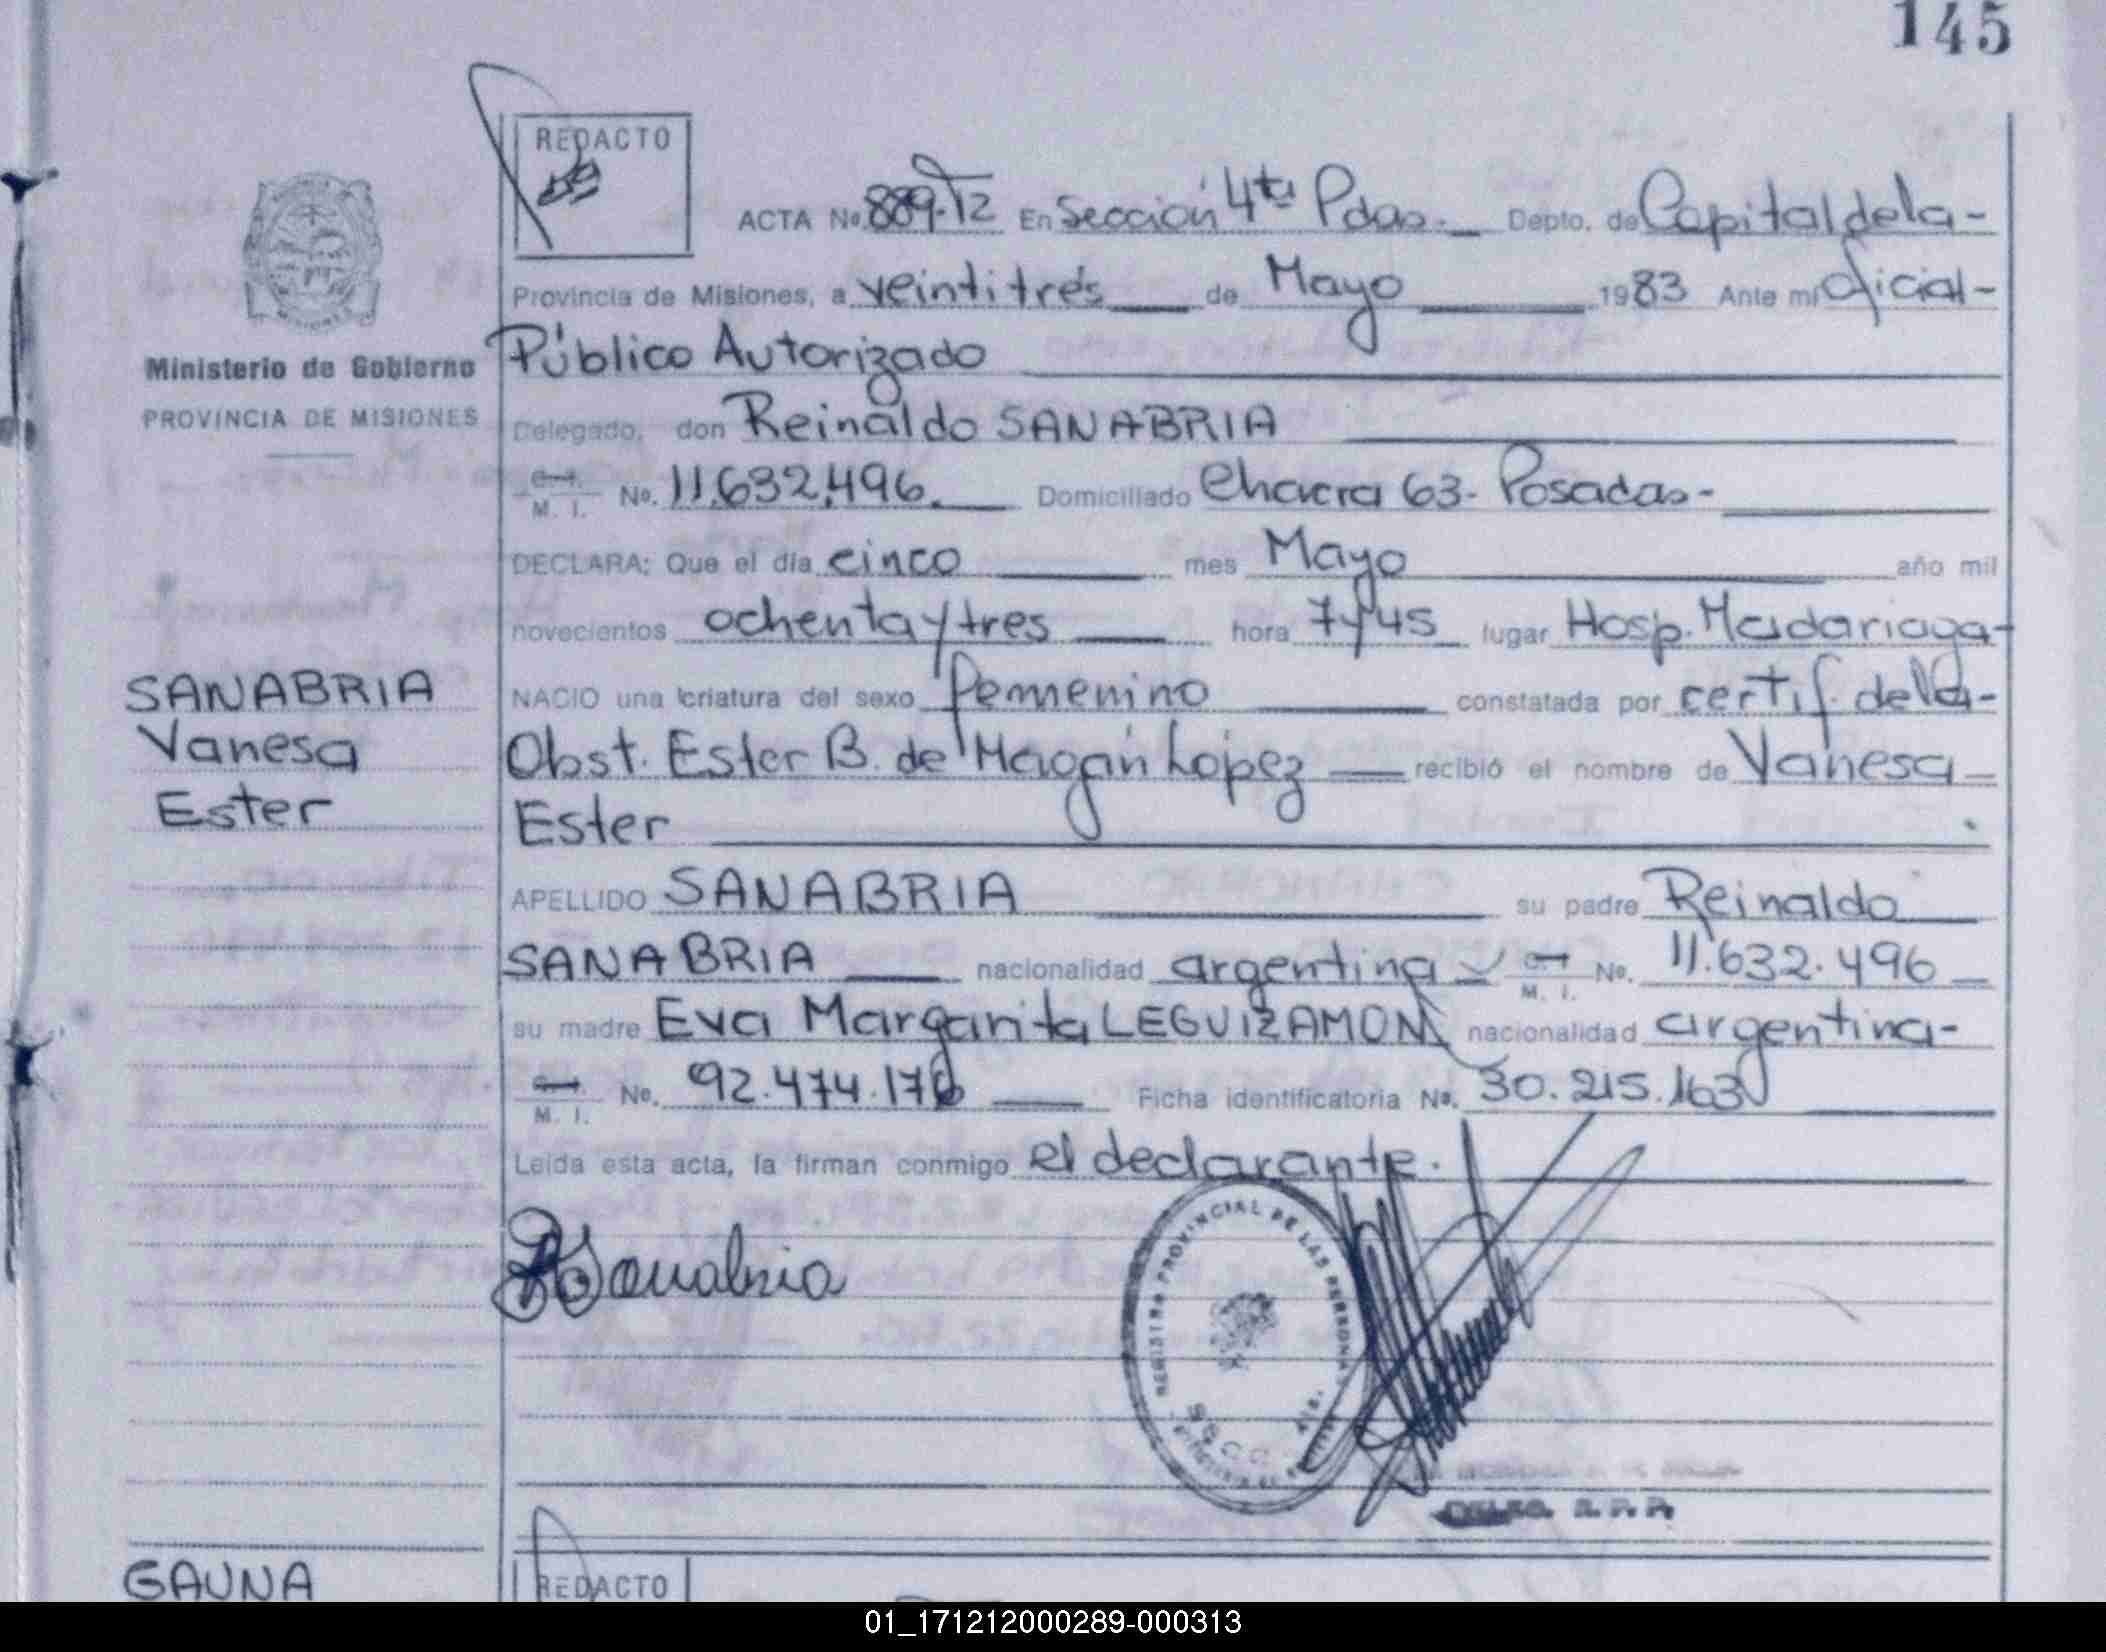 145
REDACTO
ACTA No. 889-T2 En Sección 4ta Pdas. Depto. de Capital de la-
Provincia de Misiones, a veintitrés de Mayo 1983 Ante mi Oficial-
Ministerio de Gobierno
PROVINCIA DE MISIONES
Público Autorizado
Delegado, don Reinaldo SANABRIA
C. I.
M. I. No. 11.632.496. Domiciliado Chacra 63- Posadas-
DECLARA: Que el día cinco mes Mayo año mil
novecientos ochenta y tres hora 7 y 45 lugar Hosp. Madariaga-
SANABRIA
Vanesa
Ester
NACIO una criatura del sexo femenino constatada por certif. de la-
Obst. Ester B. de Magán López recibió el nombre de Vanesa
Ester
APELLIDO SANABRIA su padre Reinaldo
SANABRIA nacionalidad argentina C. I.
M. I. No. 11.632.496
su madre Eva Margarita LEGUIZAMON nacionalidad argentina-
C. I.
M. I. No. 92.474.176 Ficha identificatoria No. 30.215.163
Leída esta acta, la firman conmigo el declarante.
Sanabria
REGISTRO PROVINCIAL DE LAS PERSONAS
DELEG. R. P. P.
GAUNA
REDACTO
01_171212000289-000313